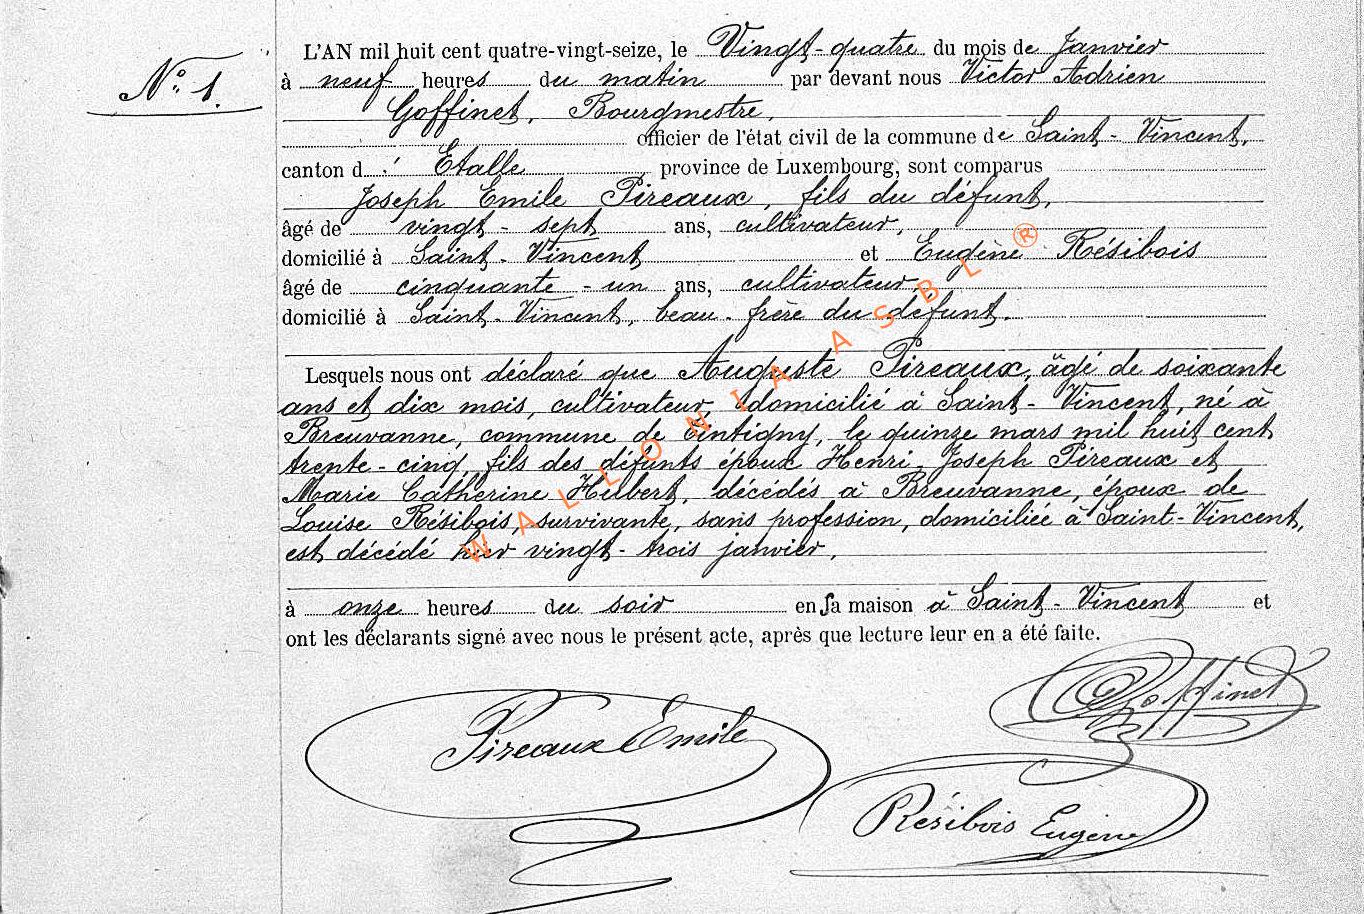 N° 1.
L'AN mil huit cent quatre-vingt-seize, le Vingt-quatre du mois de Janvier
à neuf heures du matin par devant nous Victor Adrien
Goffinet, Bourgmestre,
officier de l'état civil de la commune de Saint-Vincent,
canton d' Etalle province de Luxembourg, sont comparus
Joseph Emile Pireaux, fils du défunt,
âgé de vingt-sept ans, cultivateur,
domicilié à Saint-Vincent et Eugène Résibois
âgé de cinquante-un ans, cultivateur,
domicilié à Saint-Vincent, beau-frère du défunt.
Lesquels nous ont déclaré que Auguste Pireaux, âgé de soixante
ans et dix mois, cultivateur domicilié à Saint-Vincent, né à
Breuvanne, commune de Tintigny, le quinze mars mil huit cent
trente-cinq, fils des défunts époux Henri-Joseph Pireaux et
Marie Catherine Hubert, décédés à Breuvanne, époux de
Louise Résibois, survivante, sans profession, domiciliée à Saint-Vincent,
est décédé hier vingt-trois janvier,
à onze heures du soir en sa maison à Saint-Vincent et
ont les déclarants signé avec nous le présent acte, après que lecture leur en a été faite.
Goffinet
Pireaux Emile
Résibois Eugène
WALLONIA ASBL ®